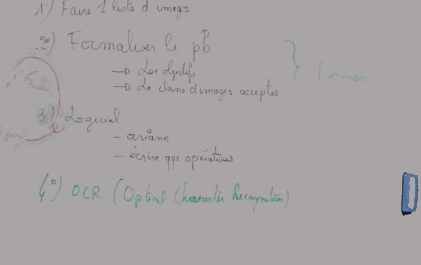 1°) Faire 1 liste d'images
2°) Formaliser le pb
→ Les objectifs
→ La classe d'images acceptées
3°) Logiciel
- ariane
- écrire qqs opérateurs
4°) OCR (Optical Character Recognition)